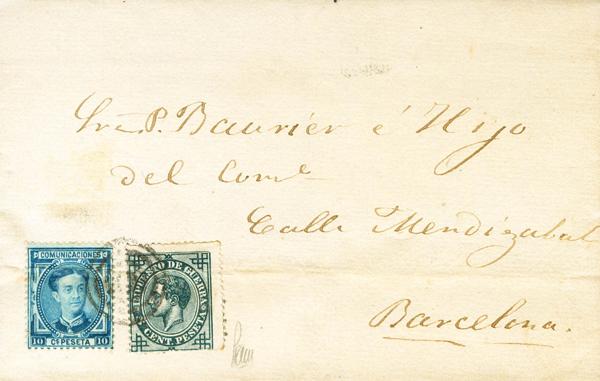 Sr. P. Baurier é Hijo
del Come
Calle Mendizabal
Barcelona.
COMUNICACIONES
10 Cs PESETA 10
IMPUESTO DE GUERRA
5 CENT. PESETA 5